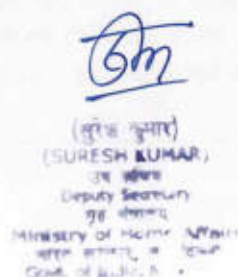 (सुरेश कुमार)
(SURESH KUMAR)
उप सचिव
Deputy Secretary
गृह मंत्रालय
Ministry of Home Affairs
भारत सरकार
Govt. of India